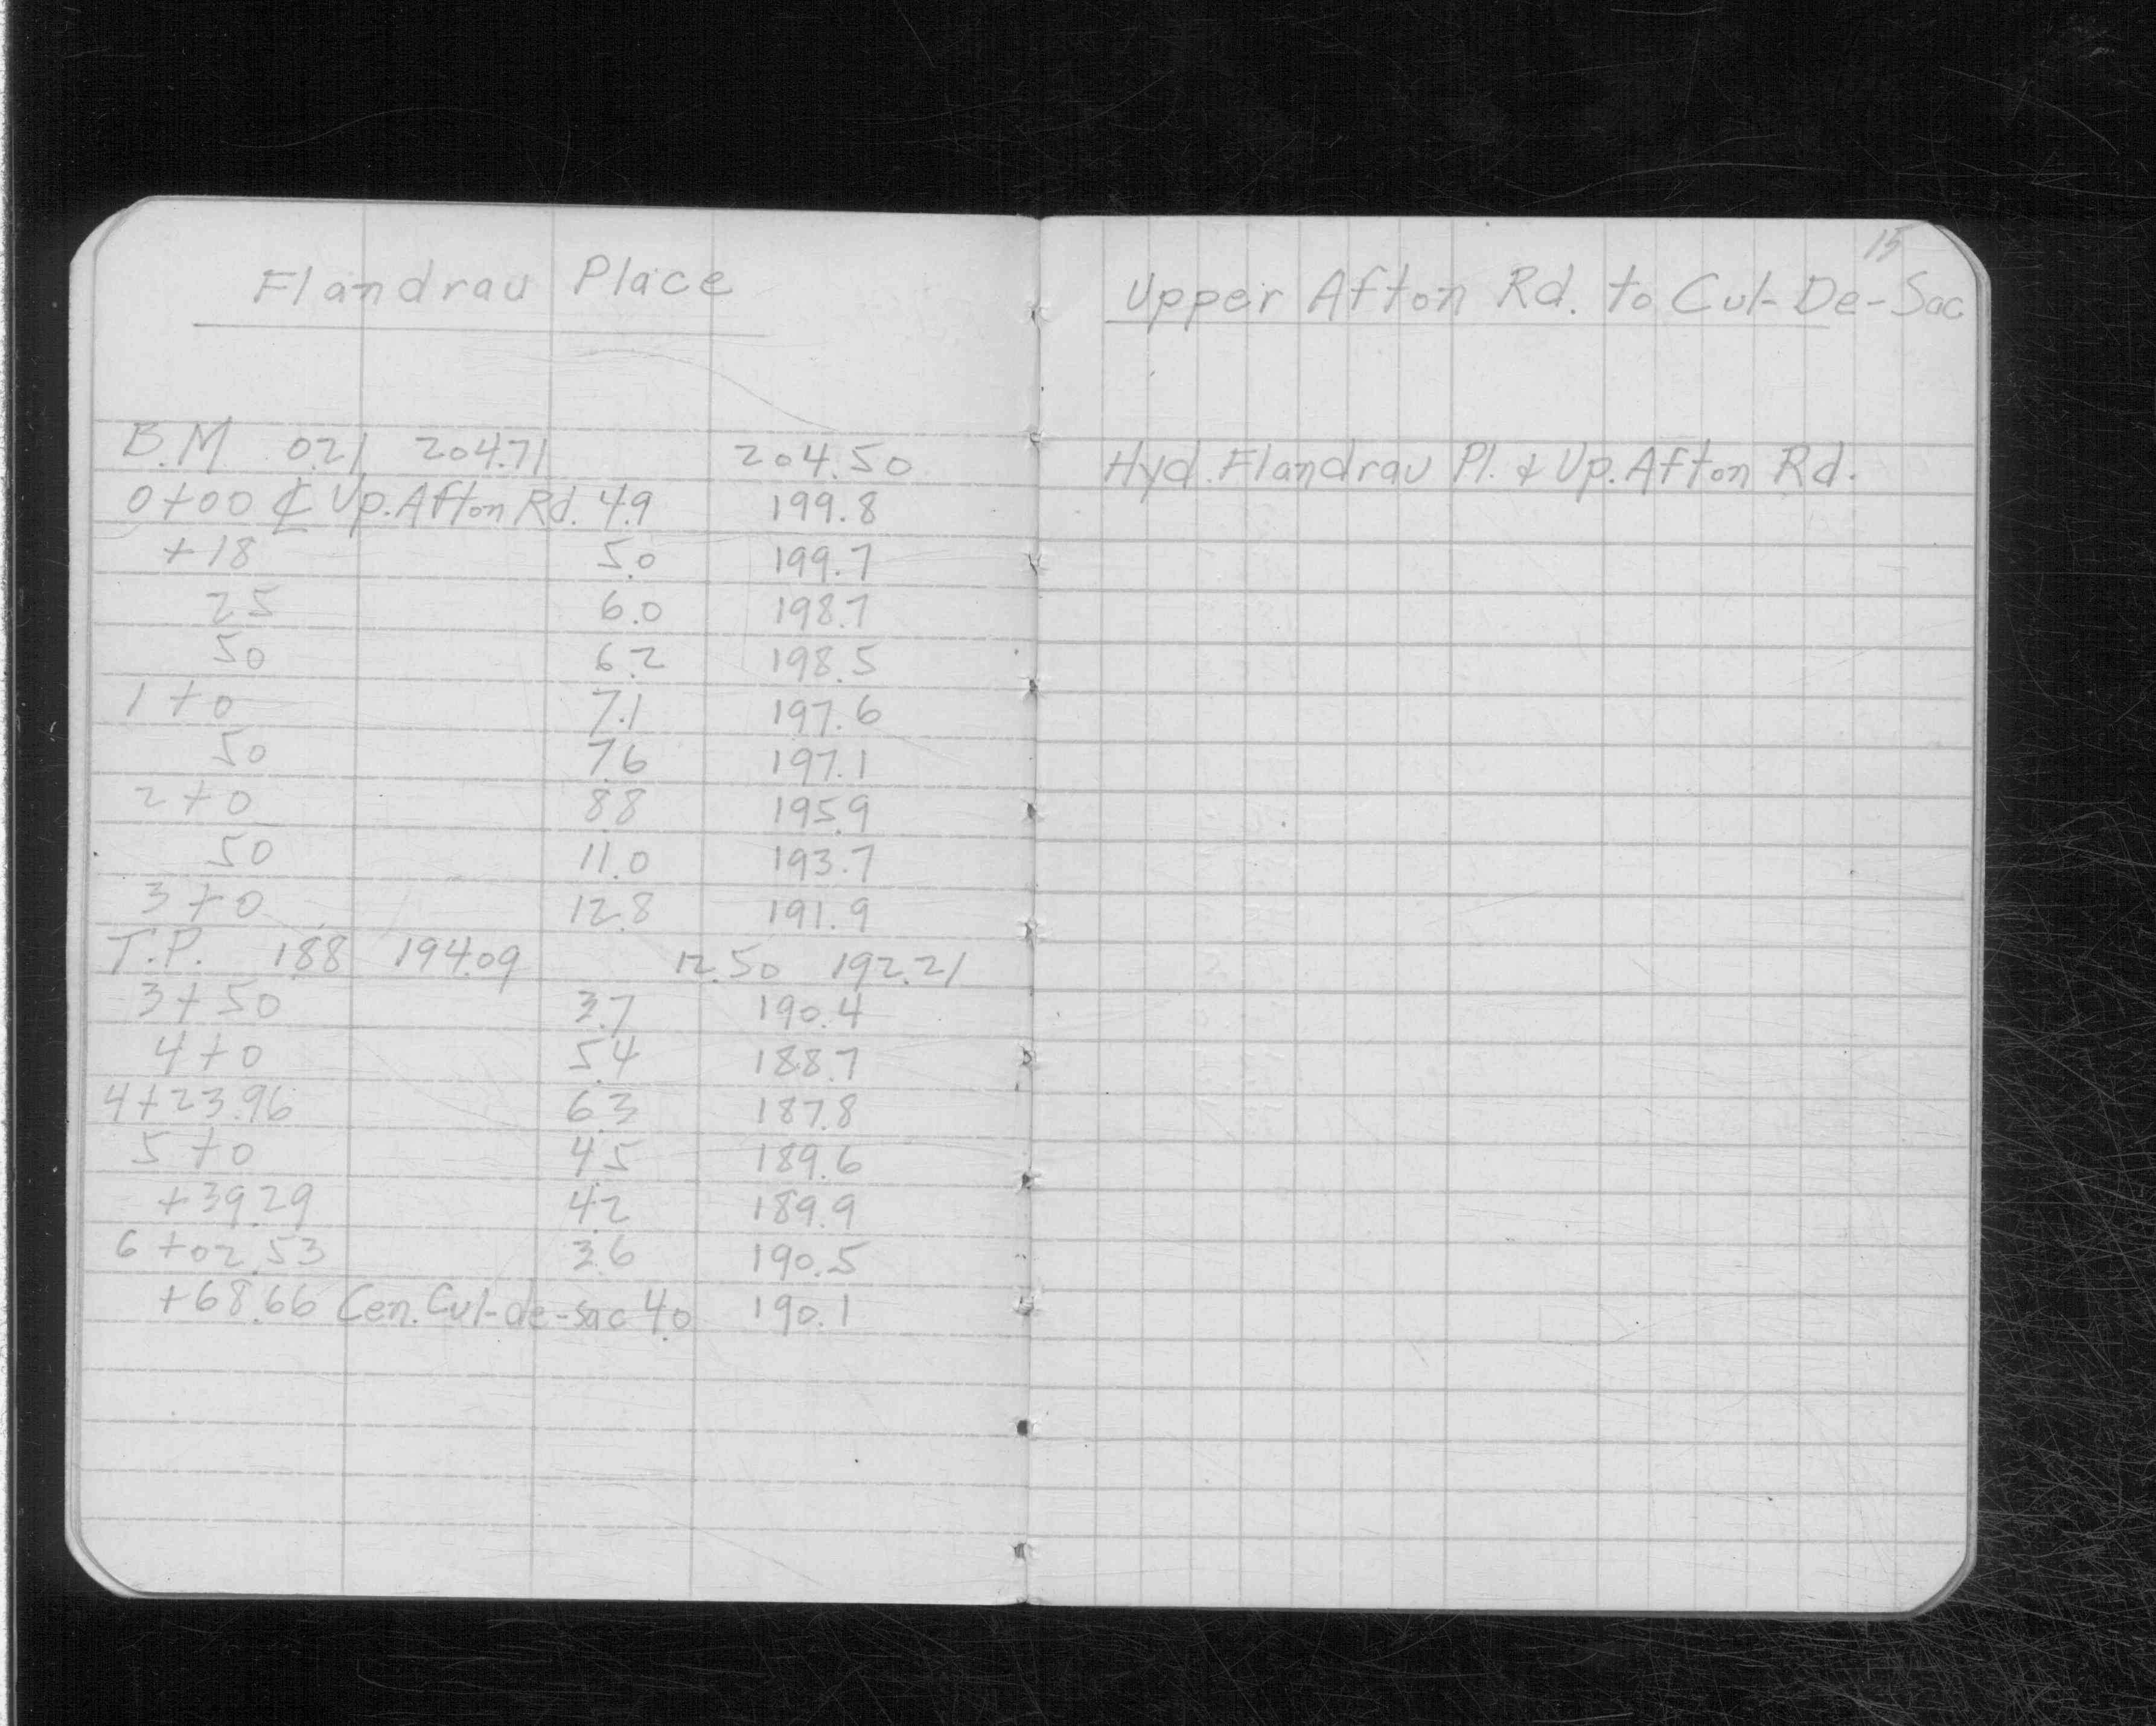 Flandrau Place
B.M 0.21 204.71 204.50
0+00 ℄ Up. Afton Rd. 4.9 199.8
+18 5.0 199.7
25 6.0 198.7
50 6.2 198.5
1+0 7.1 197.6
50 7.6 197.1
2+0 8.8 195.9
50 11.0 193.7
3+0 12.8 191.9
T.P. 1.88 194.09 12.50 192.21
3+50 3.7 190.4
4+0 5.4 188.7
4+23.96 6.3 187.8
5+0 4.5 189.6
+39.29 4.2 189.9
6+02.53 3.6 190.5
+68.66 Cen. Cul-de-sac 4.0 190.1
15
Upper Afton Rd. to Cul-De-Sac
Hyd. Flandrau Pl. & Up. Afton Rd.